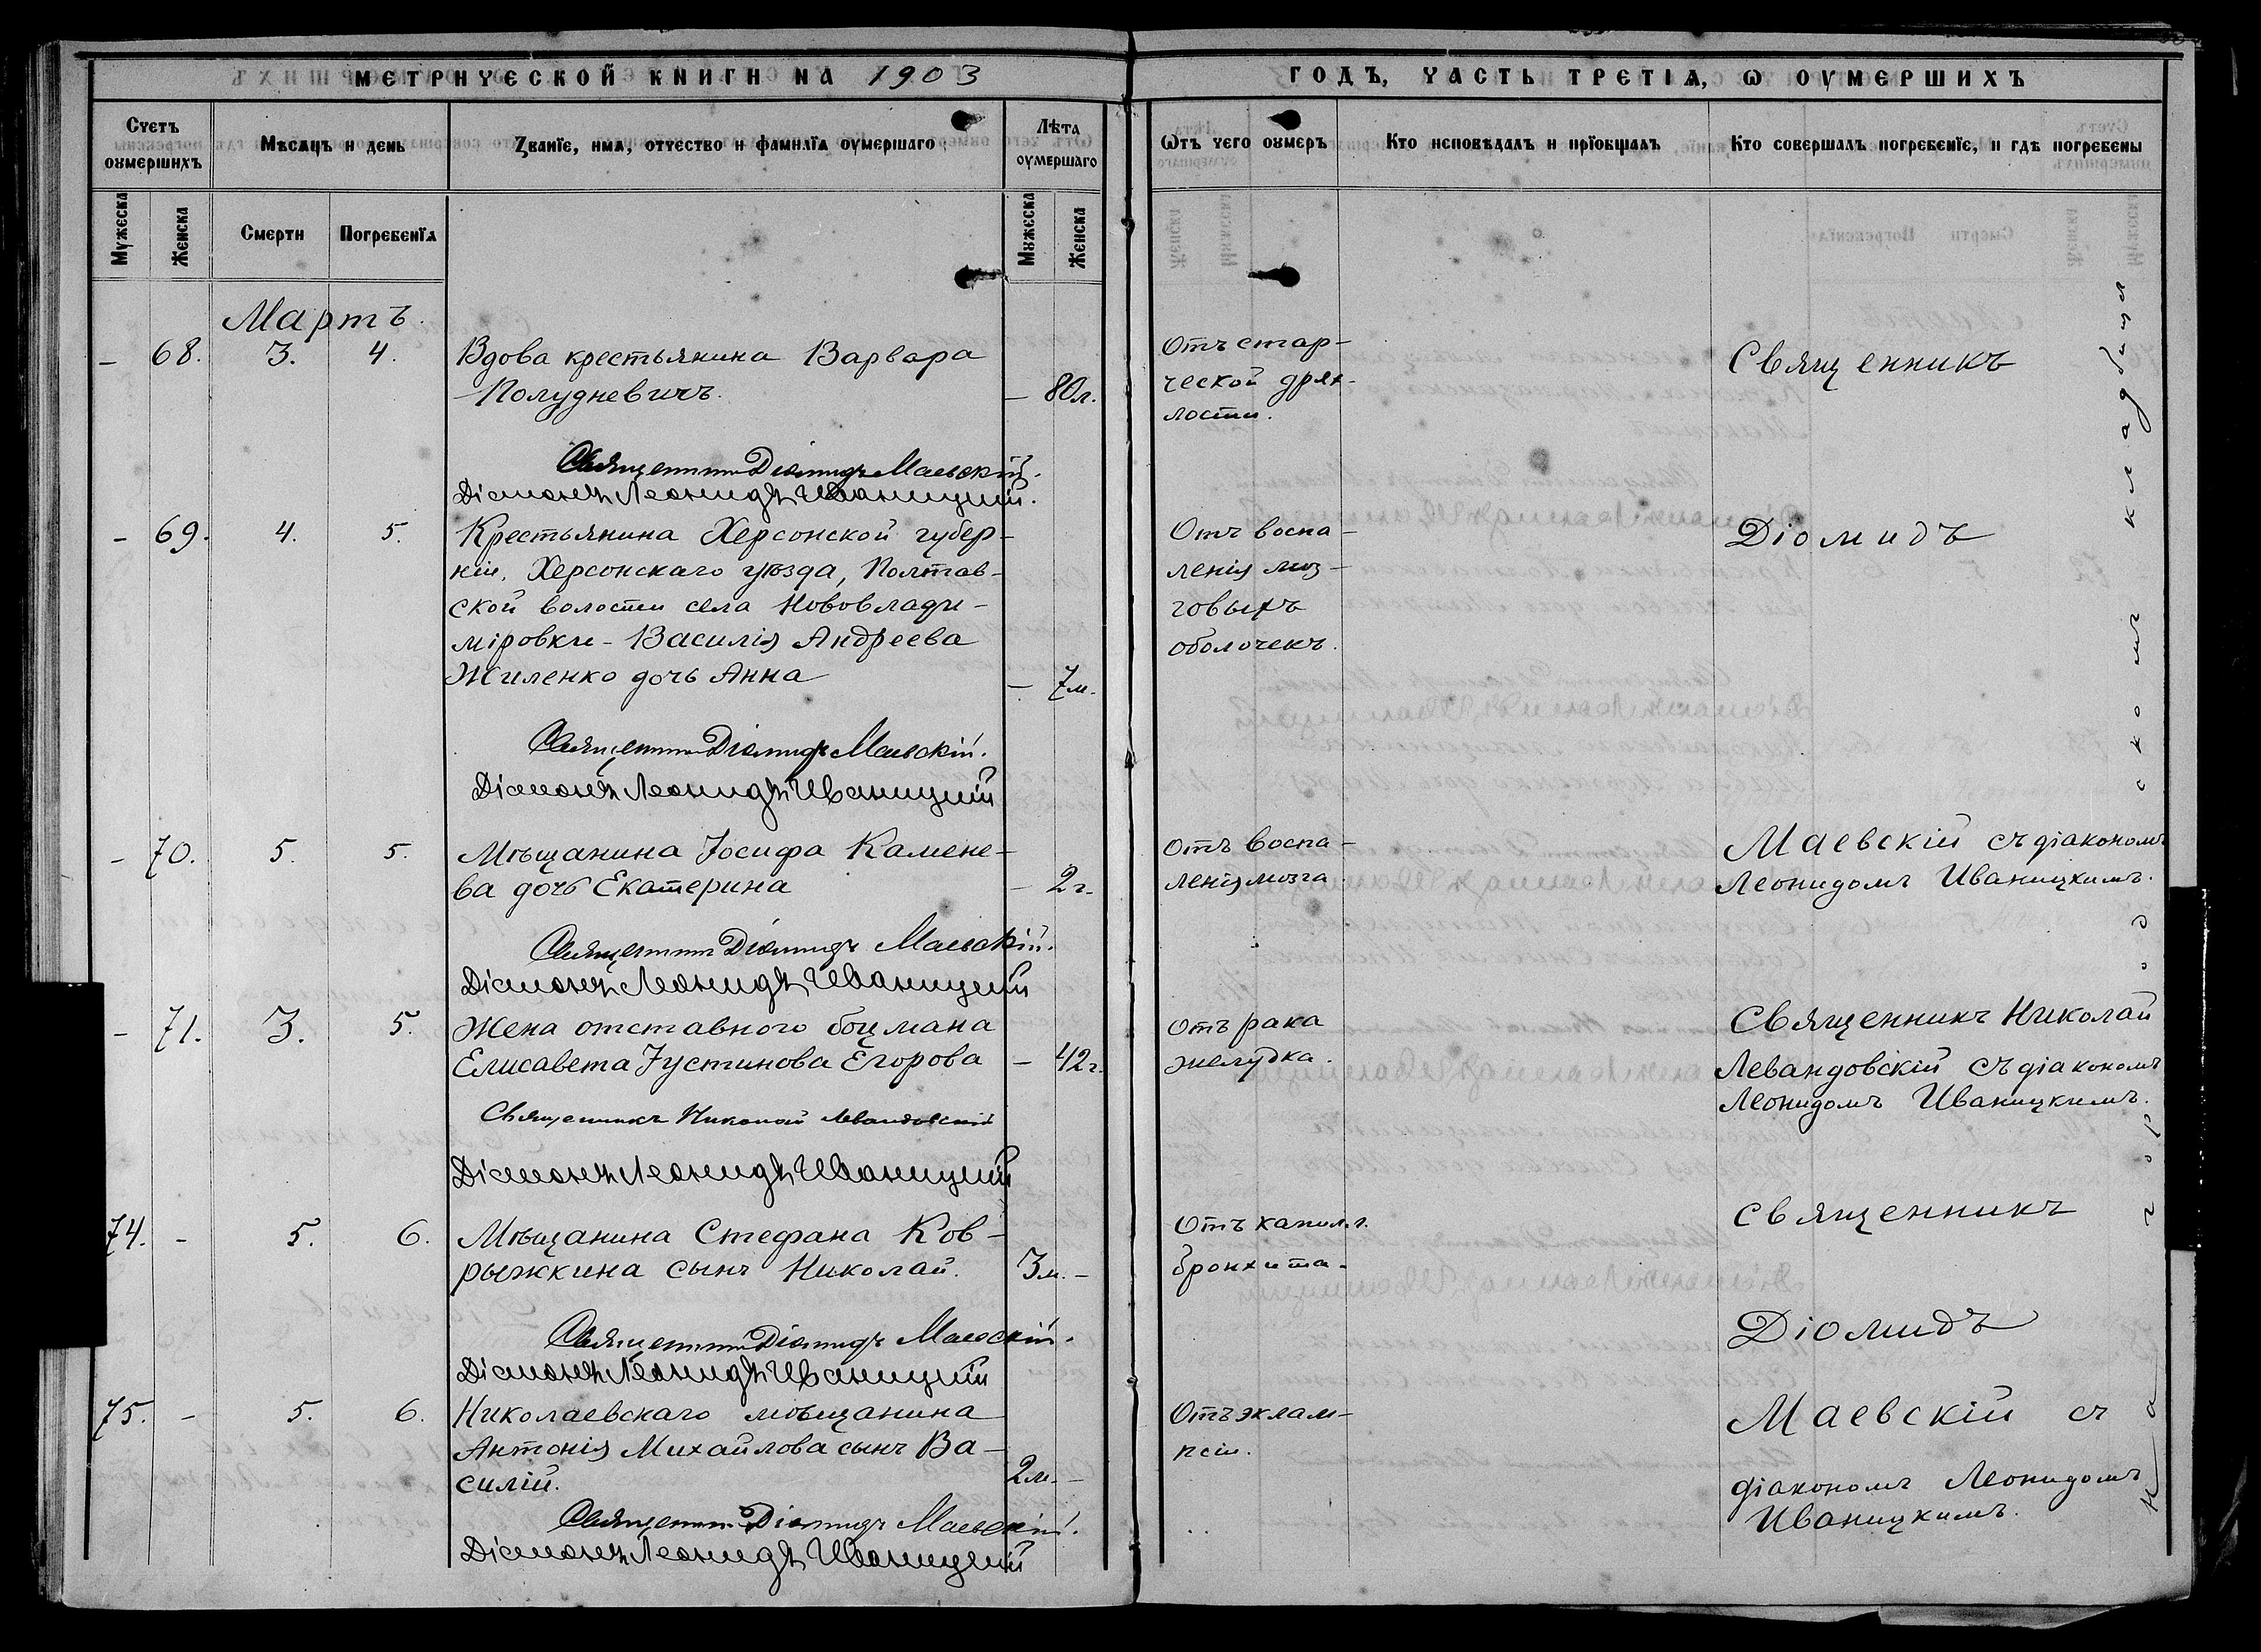 МЕТРИЧЕСКОЙ КНИГИ НА 1903
ГОДЪ, ЧАСТЬ ТРЕТІѦ, Ѡ ОУМЕРШИХЪ
Счетъ оумершихъ
Мѣсяцъ и день
Званїе, имя, отчество и фамилїя оумершаго
Лѣта оумершаго
Ѿтъ чего оумеръ
Кто исповѣдалъ и прїобщалъ
Кто совершалъ погребенїе, и гдѣ погребены
Мужеска
Женска
Смерти
Погребенїя
Мужеска
Женска
Мартъ.
– 68. 3. 4. Вдова крестьянина Варвара
Полудневичъ. – 80 л.
Отъ стар-
ческой дрях-
лости.
Священникъ
Священникъ Діомидъ Маевскій.
Діаконъ Леонидъ Иваницкій.
– 69. 4. 5. Крестьянина Херсонской губер-
ніи, Херсонскаго уѣзда, Полтав-
ской волости села Нововлади-
міровки - Василія Андреева
Жиленко дочь Анна – 7 м.
Отъ воспа-
ленія моз-
говыхъ
оболочекъ.
Діомидъ
Священникъ Діомидъ Маевскій.
Діаконъ Леонидъ Иваницкій
– 70. 5. 5. Мѣщанина Іосифа Камене-
ва дочь Екатерина – 2 г.
Отъ воспа-
ленія мозга.
Маевскій съ діакономъ
Леонидомъ Иваницкимъ.
Священникъ Діомидъ Маевскій.
Діаконъ Леонидъ Иваницкій
– 71. 3. 5. Жена отставного боцмана
Елисавета Іустинова Егорова – 42 г.
Отъ рака
желудка.
Священникъ Николай
Левандовскій съ діакономъ
Леонидомъ Иваницкимъ.
Священникъ Николай Левандовскій
Діаконъ Леонидъ Иваницкій
74. – 5. 6. Мѣщанина Стефана Ков-
рыжкина сынъ Николай. 3 м. –
Отъ капил.г.
бронхита.
Священникъ
Священникъ Діомидъ Маевскій.
Діаконъ Леонидъ Иваницкій
Діомидъ
75. – 5. 6. Николаевскаго мѣщанина
Антонія Михайлова сынъ Ва-
силій. 2 м. –
Отъ эклам-
псіи.
Маевскій съ
діакономъ Леонидомъ
Иваницкимъ.
Священникъ Діомидъ Маевскій.
Діаконъ Леонидъ Иваницкій
На городскомъ кладбищѣ